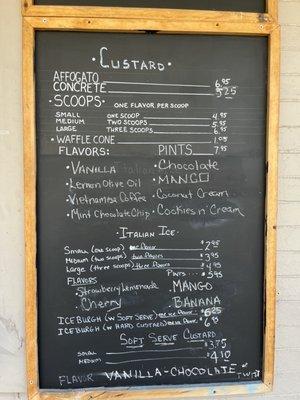 · CUSTARD ·
AFFOGATO 6.95
CONCRETE 9.25
· SCOOPS · ONE FLAVOR PER SCOOP
SMALL ONE SCOOP 4.95
MEDIUM TWO SCOOPS 5.95
LARGE THREE SCOOPS 6.95
· WAFFLE CONE 1.09
FLAVORS: PINTS 7.95
· VANILLA · Chocolate
· Lemon Olive Oil · MANGO
· Vietnamese Coffee · Coconut Cream
· Mint Chocolate Chip · Cookies n' Cream
· ITALIAN ICE ·
Small (one scoop) one flavor $2.95
Medium (two scoops) two flavors $3.95
Large (three scoops) three flavors $4.95
FLAVORS PINTS $5.95
· Strawberry Lemonade · MANGO
· Cherry · BANANA
ICEBURGH (W SOFT SERVE) one flavor $6.25
ICEBURGH (W HARD CUSTARD) one flavor $6.95
SOFT SERVE CUSTARD
SMALL $3.75
MEDIUM $4.10
FLAVOR VANILLA - CHOCOLATE or TWIST